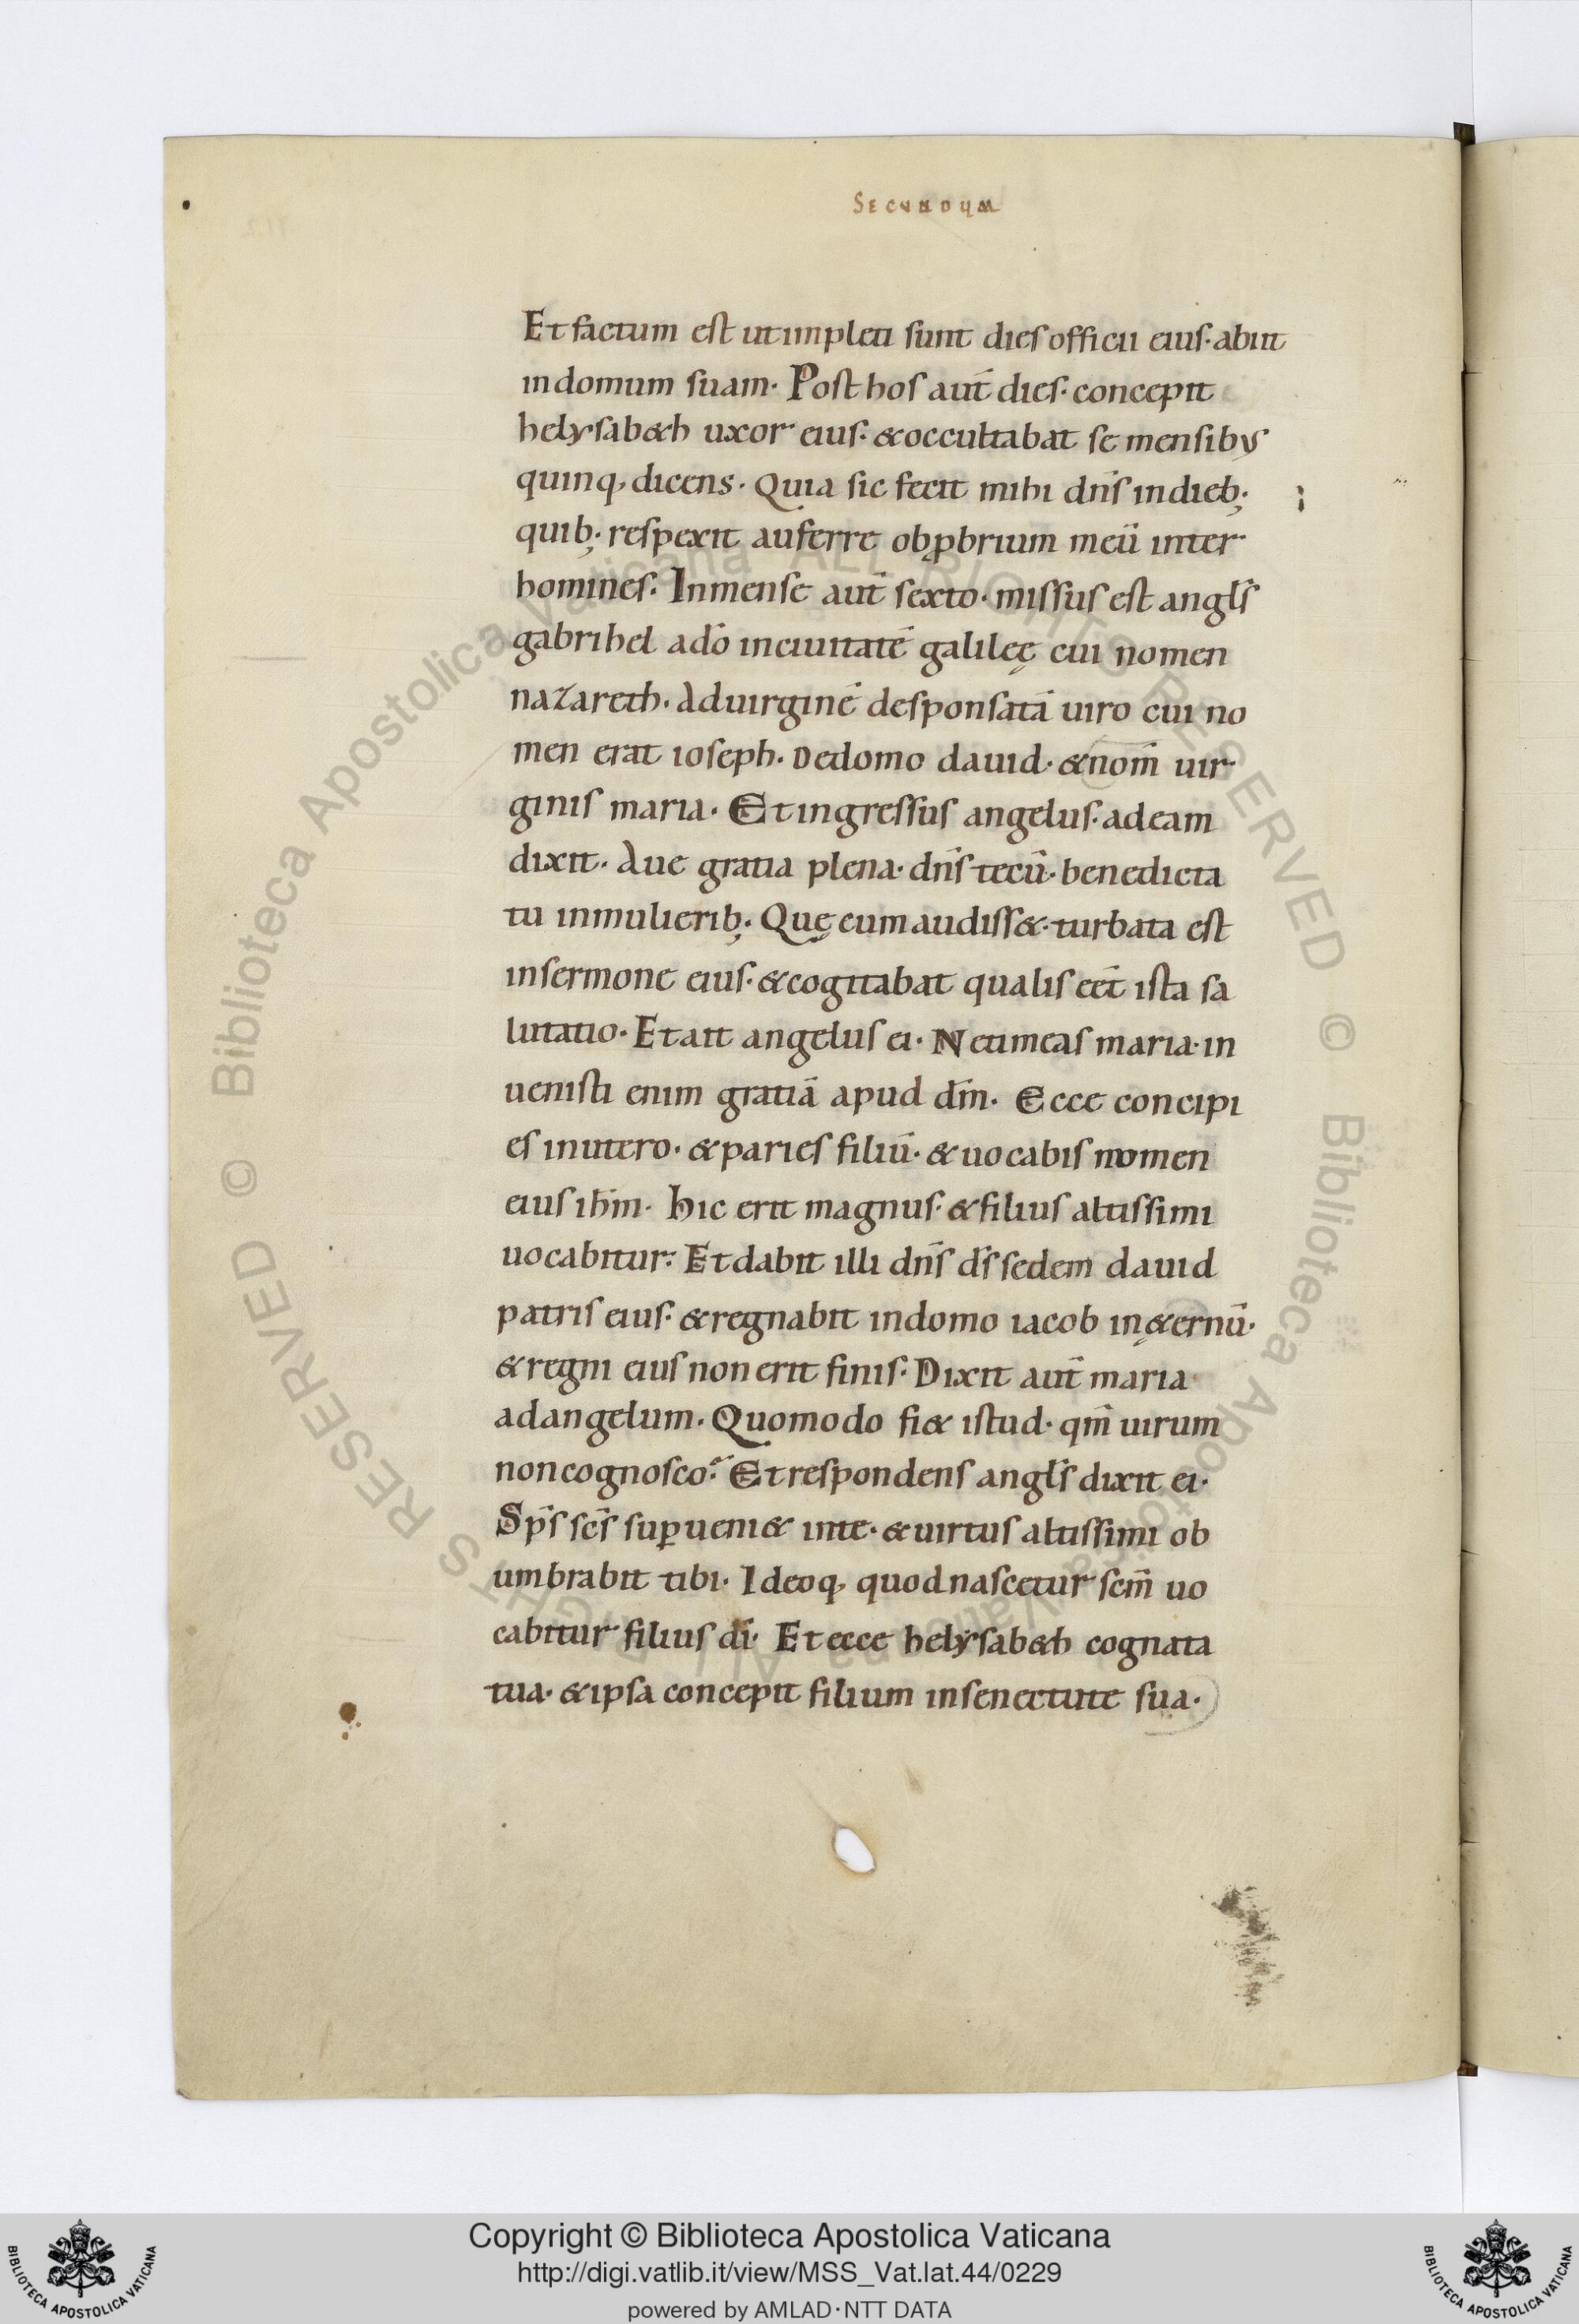 SECUNDUM
Et factum est ut impleti sunt dies officii eius· abiit
in domum suam· Post hos aut̄ dies· concepit
helysab&h uxor eius· & occultabat se mensibus
quinq; dicens· Quia sic fecit mihi dn̄s in dieb;
quib; respexit auferre obꝓbrium meū inter
homines· In mense aut̄ sexto· missus est angl̄s
gabrihel a dō in ciuitatē galileę cui nomen
nazareth· Ad uirginē desponsatā uiro cui no
men erat ioseph· De domo dauid· & nom̄ uir
ginis maria· Et ingressus angelus· ad eam
dixit· Aue gratia plena· dn̄s tecū· benedicta
tu in mulierib;· Quę cum audiss&· turbata est
in sermone eius· & cogitabat qualis eēt ista sa
lutatio· Et ait angelus ei· Ne timeas maria· in
uenisti enim gratiā apud dm̄· Ecce concipi
es in utero· & paries filiū· & uocabis nomen
eius ih̄m· Hic erit magnus· & filius altissimi
uocabitur· Et dabit illi dn̄s ds̄ sedem dauid
patris eius· & regnabit in domo iacob in ę&ernū·
& regni eius non erit finis· Dixit aut̄ maria
ad angelum· Quomodo fi& istud· qm̄ uirum
non cognosco? Et respondens angl̄s dixit ei·
Sp̄s sc̄s suꝑueni& in te· & uirtus altissimi ob
umbrabit tibi· Ideoq; quod nascetur scm̄ uo
cabitur filius dī· Et ecce helysab&h cognata
tua· & ipsa concepit filium in senectute sua·
© Biblioteca Apostolica Vaticana ALL RIGHTS RESERVED © Biblioteca Apostolica Vaticana ALL RIGHTS RESERVED
BIBLIOTECA APOSTOLICA VATICANA
Copyright © Biblioteca Apostolica Vaticana
http://digi.vatlib.it/view/MSS_Vat.lat.44/0229
powered by AMLAD·NTT DATA
BIBLIOTECA APOSTOLICA VATICANA